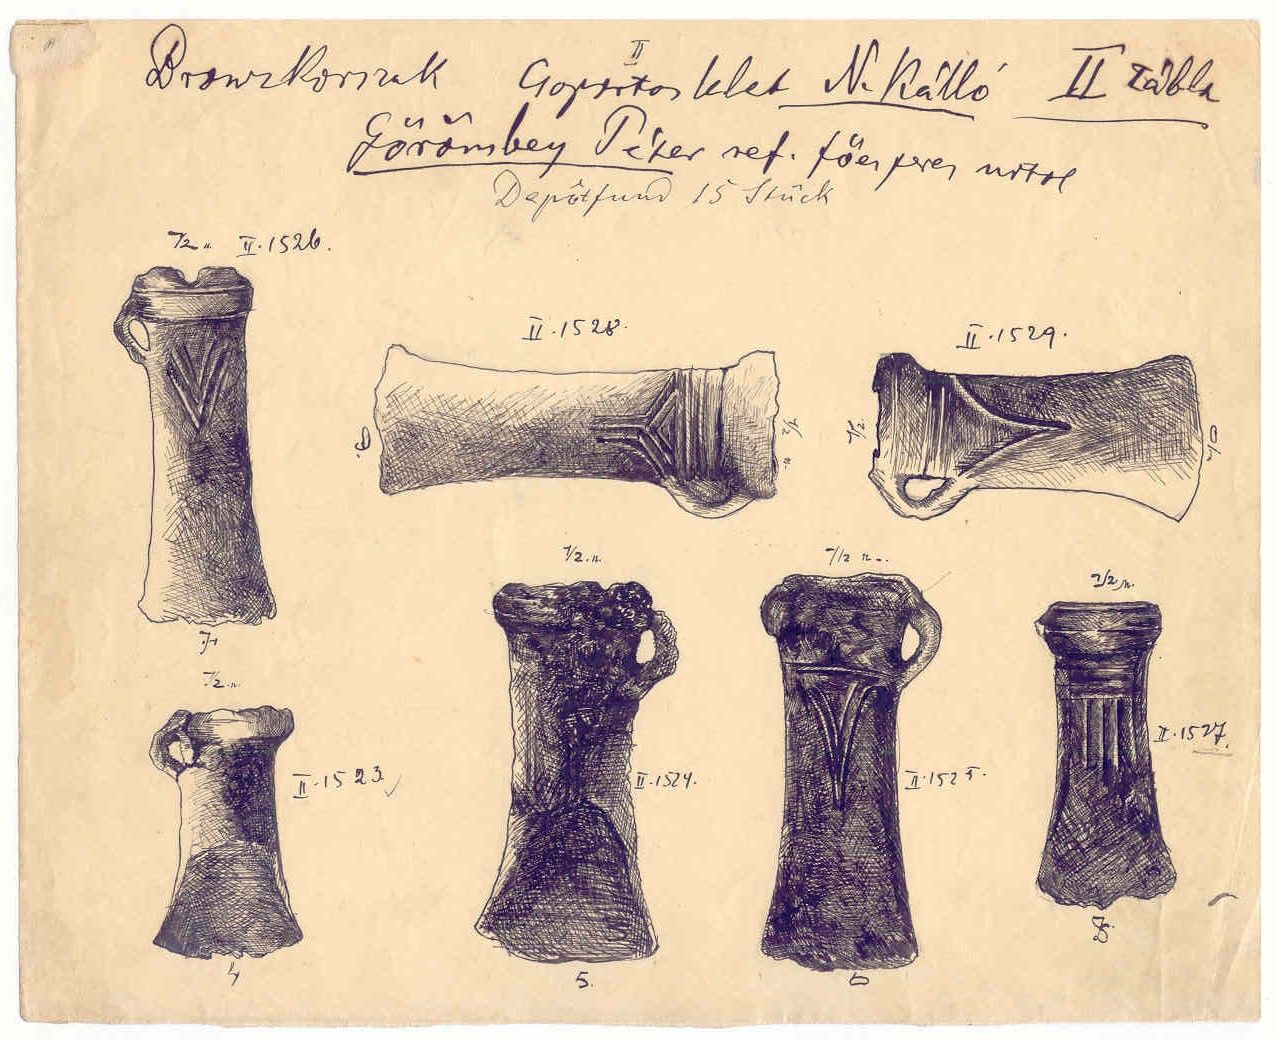 II
Bronzkorszak Csoportos lelet N. Kálló II tábla
Görömbey Péter ref. főesperes úrtól
Depôtfund 15 Stück
1/2 n. II.1526.
II.1528.
II.1529.
1/2 n.
1/2
1/2 n.
1/2 n.
1/2 n.
7
1/2 n.
II.1527.
II.1523
II.1524.
II.1525.
8
4
5.
6